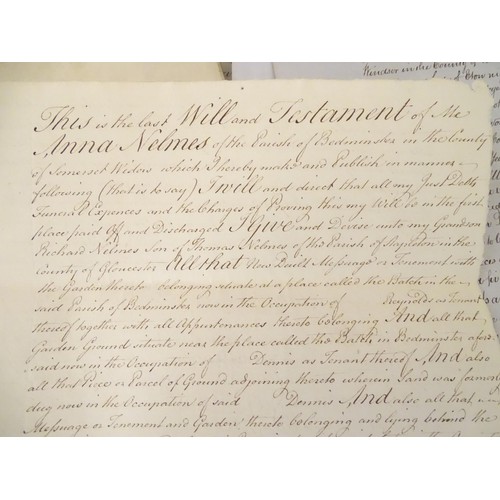 Windsor in the County of
This is the last Will and Testament of Me
Anna Nelmes of the Parish of Bedminster in the County
of Somerset Widow which I hereby make and Publish in manner
following (that is to say) I will and direct that all my Just Debts
Funeral Expences and the Charges of Proving this my Will be in the first
place paid Off and Discharged I Give and Devise unto my Grandson
Richard Nelmes Son of Thomas Nelmes of the Parish of Stapleton in the
County of Gloucester All that New Built Messuage or Tenement with
the Garden thereto belonging situate at a place called the Batch in the
said Parish of Bedminster now in the Occupation of Reynolds as Tenant
thereof together with all Appurtenances thereto belonging And all that
Garden Ground situate near the place called the Batch in Bedminster afore-
said now in the Occupation of Dennis as Tenant thereof And also
all that Piece or Parcel of Ground adjoining thereto wherein Sand was formerly
dug now in the Occupation of said Dennis And also all that
Messuage or Tenement and Garden thereto belonging and lying behind the